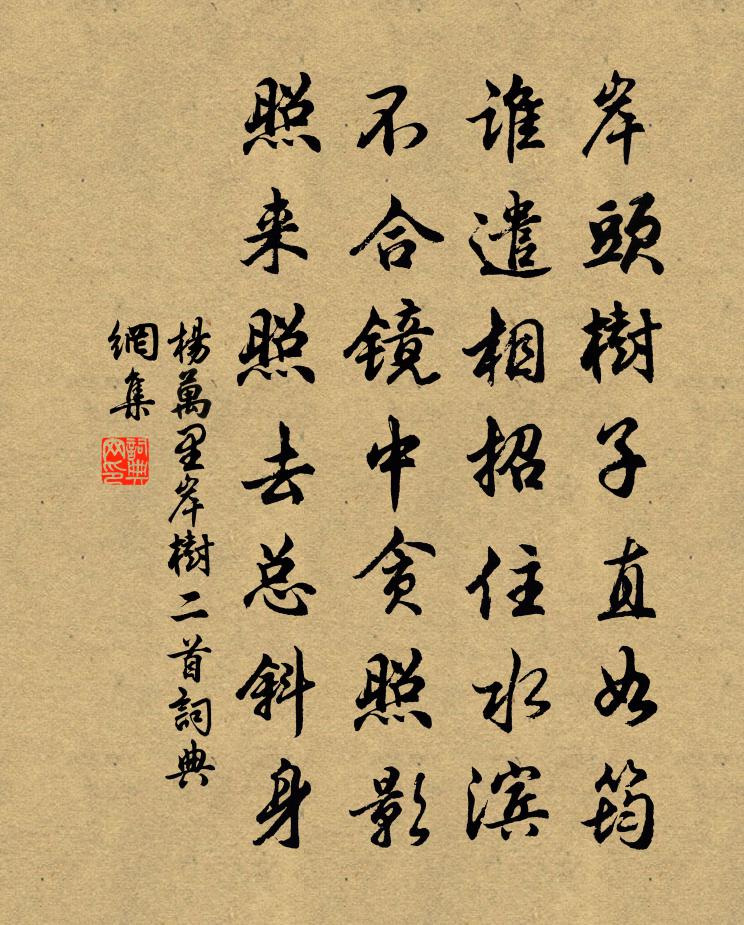 岸頭樹子直如筠
誰遣相招住水滨
不合镜中贪照影
照来照去总斜身
楊萬里岸樹二首詞典
網集
詞典
网印